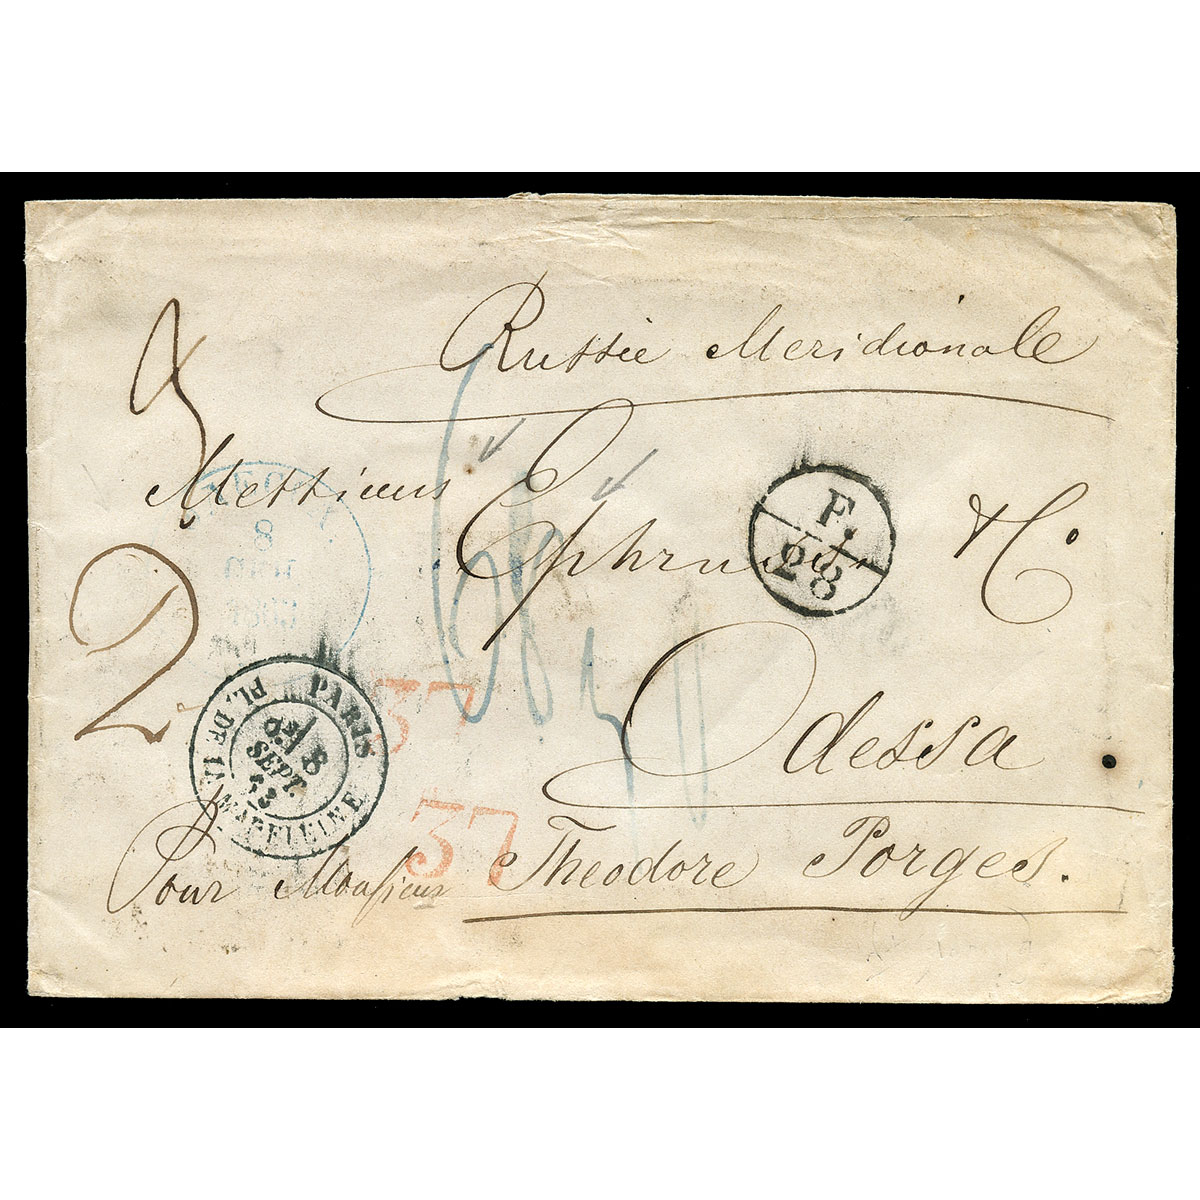 Russie Meridionale
3
Messieurs Ephrussi & Co.
F.
28
2
Odessa
PARIS
PL. DE LA MADELEINE
8
SEPT.
63
37
37
Pour Monsieur Theodore Porges.